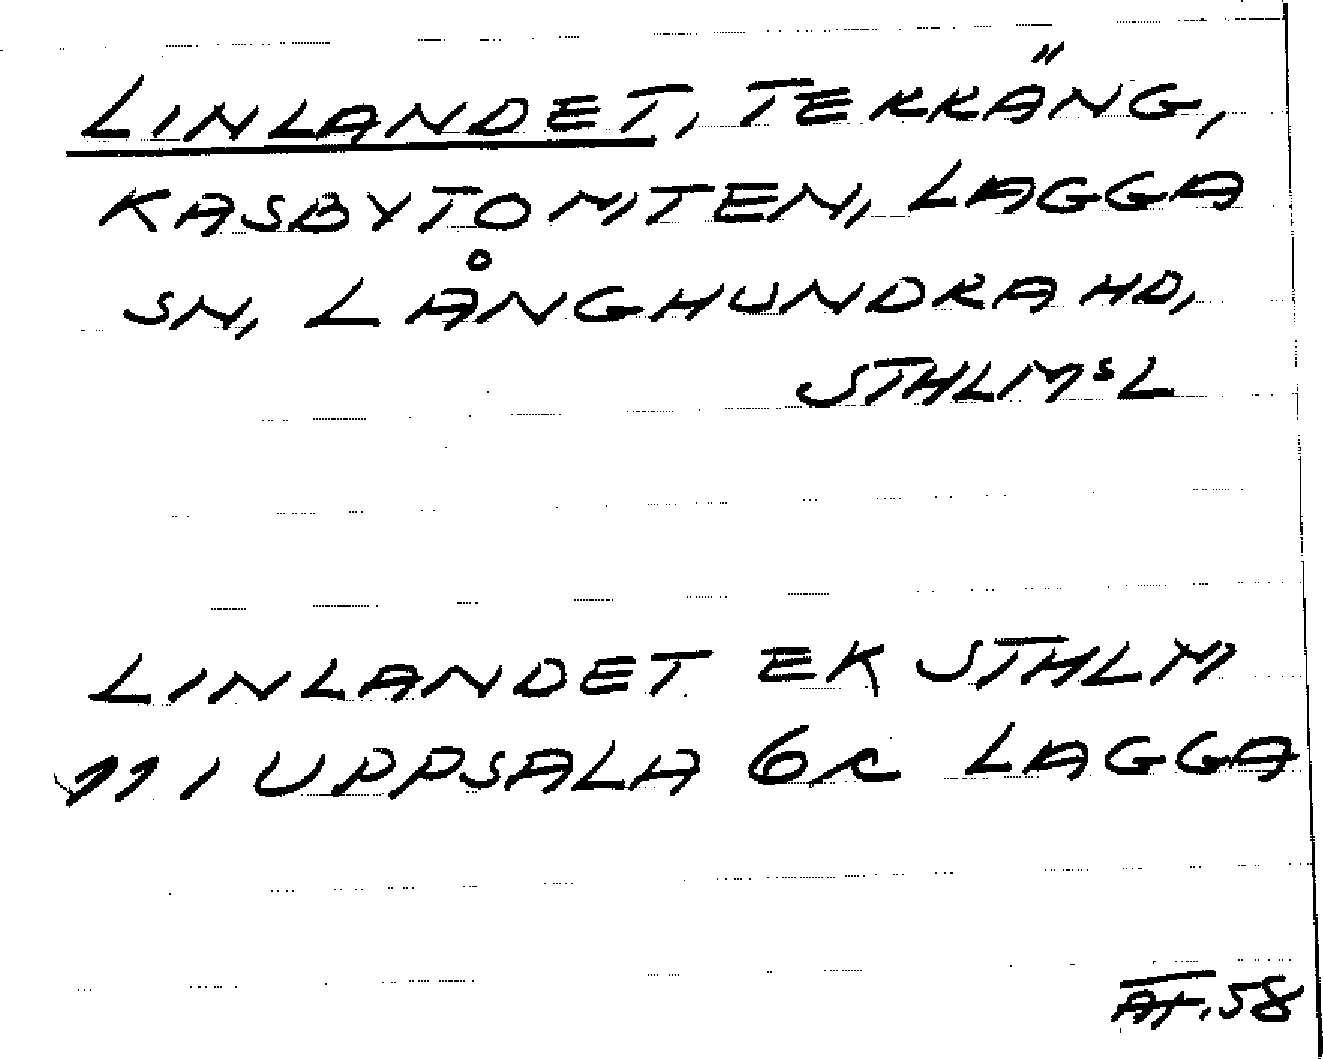 LINLANDET, TERRÄNG,
KASBYTOMTEN, LAGGA
SN, LÅNGHUNDRA HD,
STHLMˢL
LINLANDET EK STHLM
111 UPPSALA 6c LAGGA